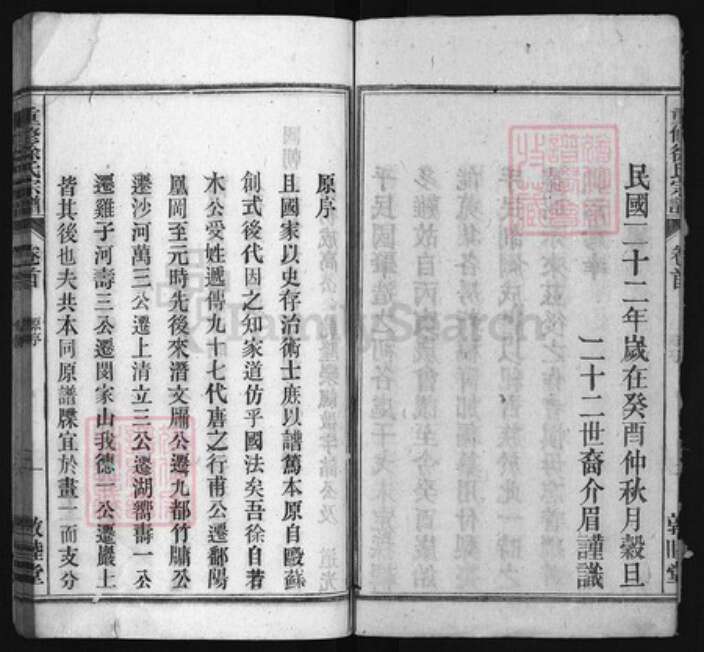 重修徐氏宗譜
卷首
敦睦堂
民國二十二年歲在癸酉仲秋月穀旦
二十二世裔介眉謹識
原序
且國家以史存治術士庶以譜篤本原自毉蘇
創式後代因之知家道仿乎國法矣吾徐自若
木公受姓遞傳九十七代唐之行甫公遷鄱陽
凰岡至元時先後來潛文廟公遷九都竹牗公
遷沙河萬三公遷上清立三公遷湖嚮壽一公
遷雞子河壽三公遷閔家山我德一公遷巖上
皆其後也夫共本同原譜牒宜於畫一而支分
重修徐氏宗譜
卷首
原序
敦睦堂
FamilySearch